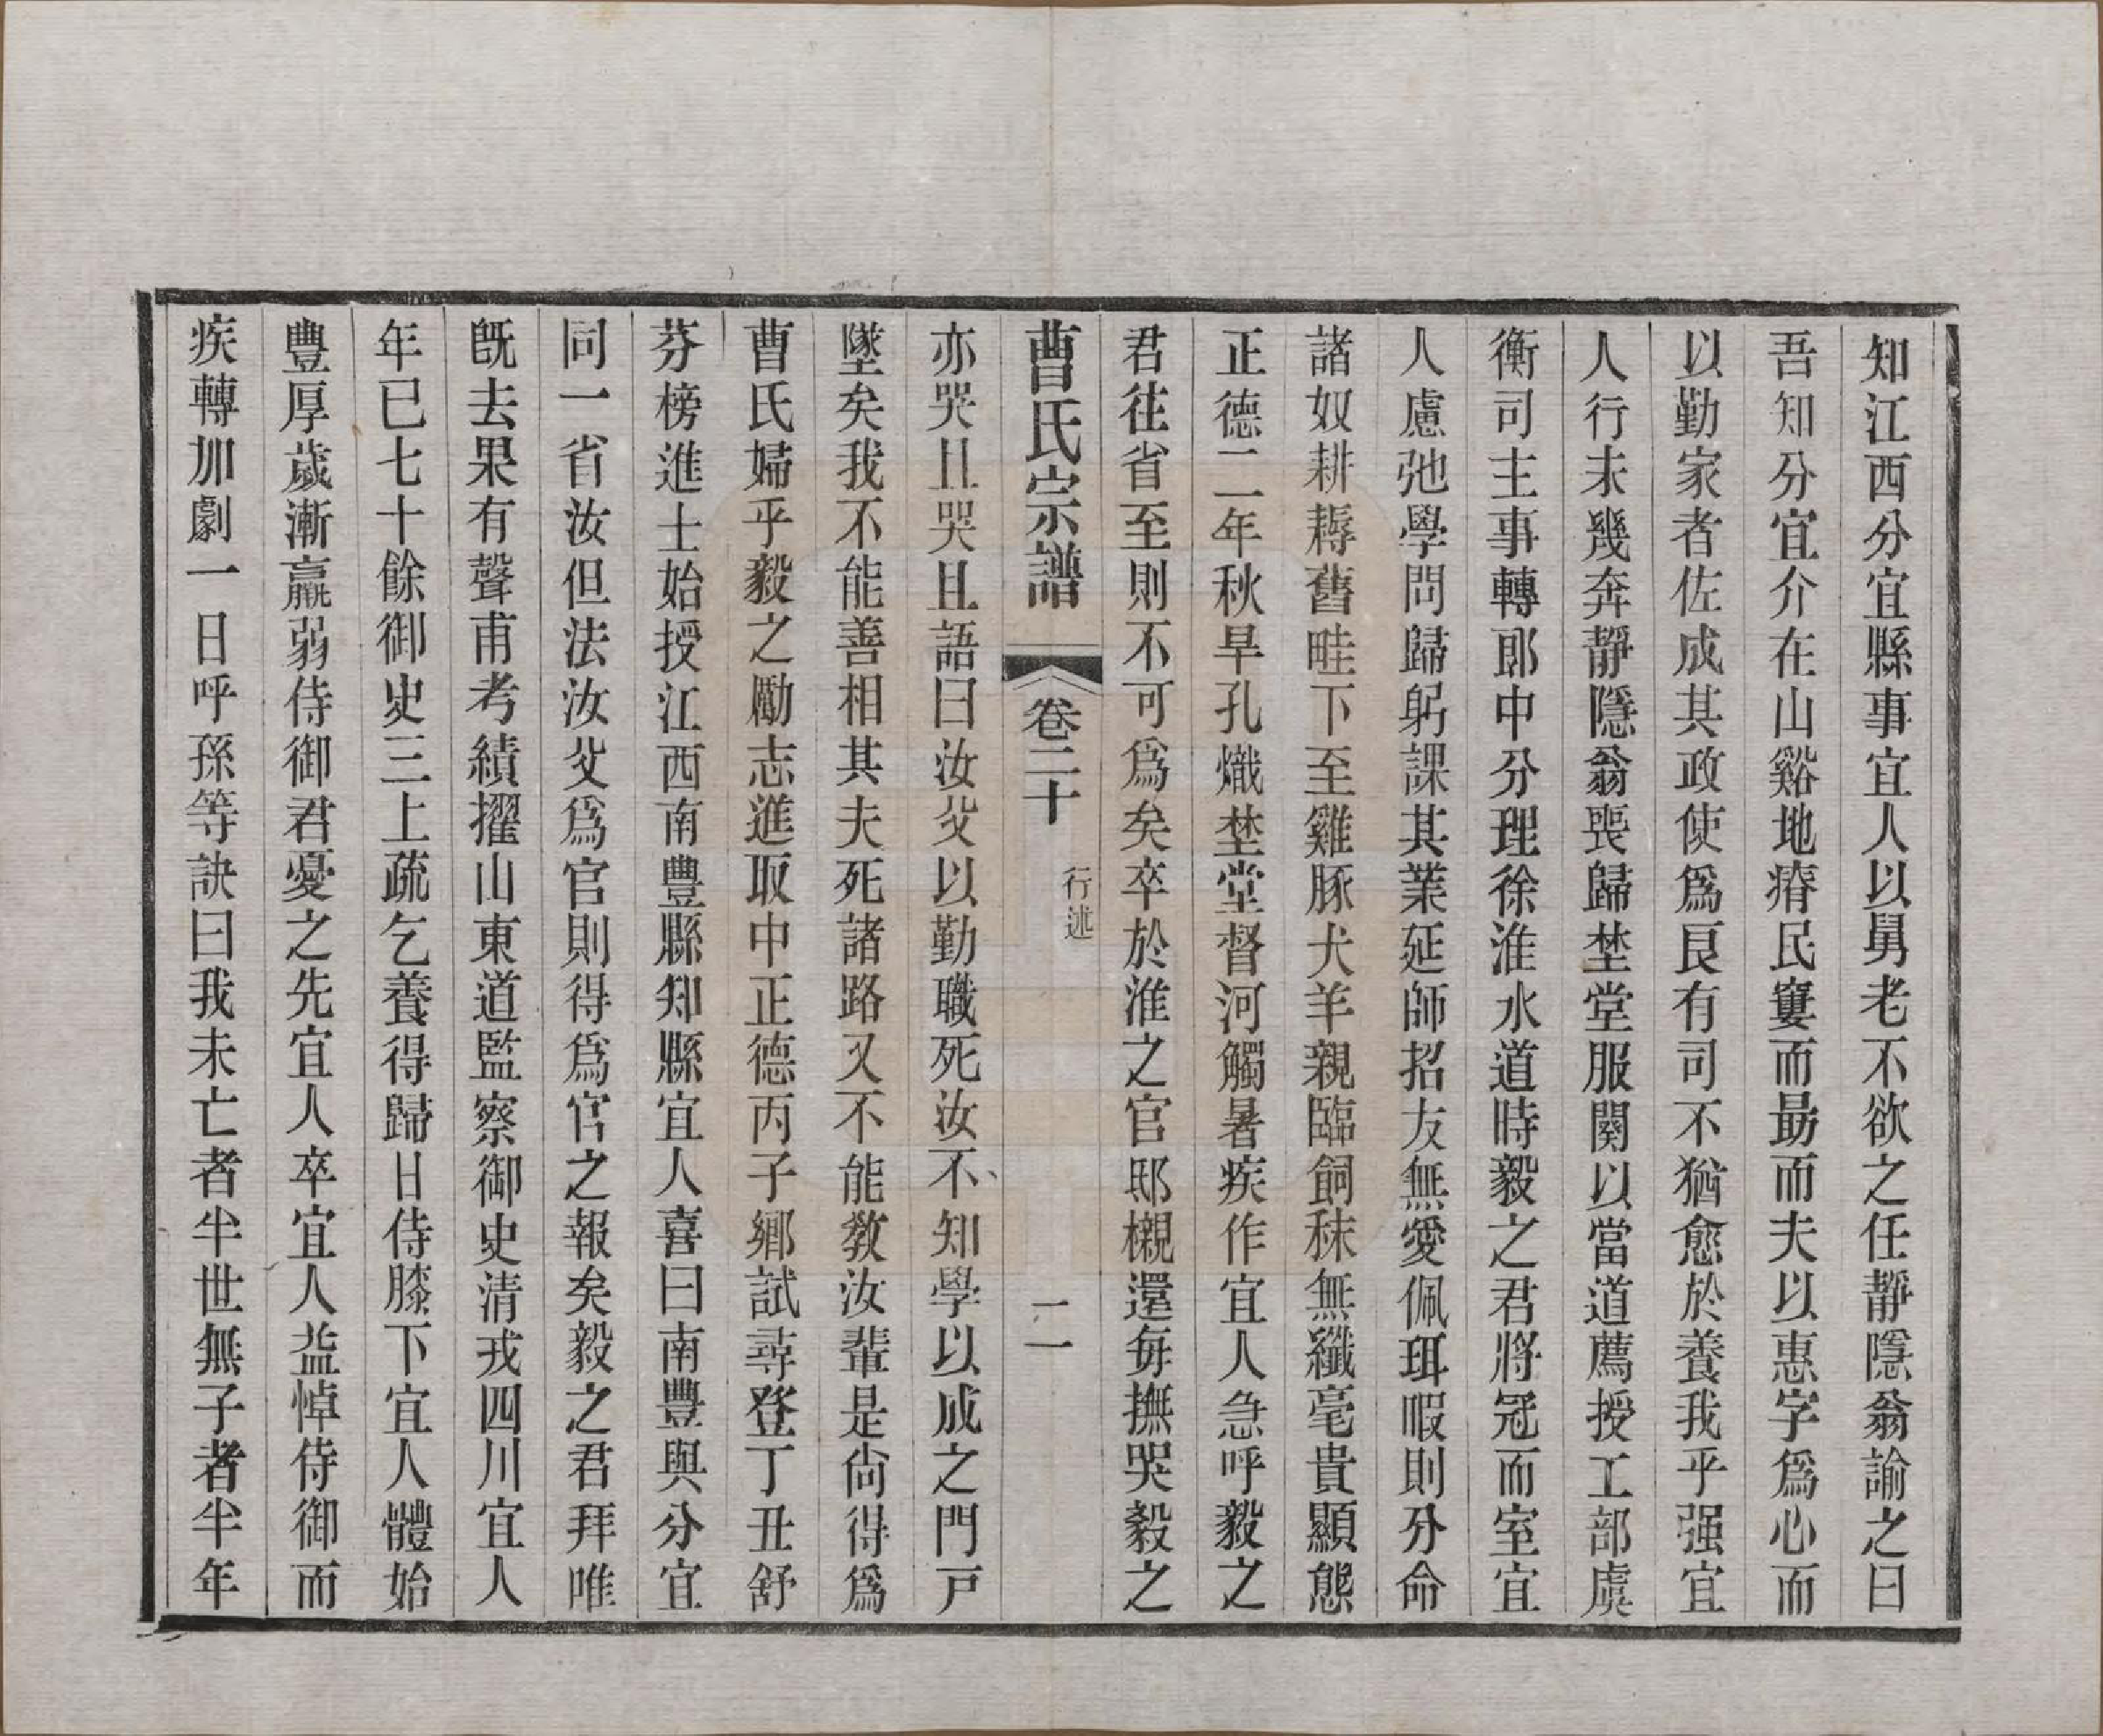 知江西分宜縣事宜人以舅老不欲之任靜隱翁諭之曰
吾知分宜介在山谿地瘠民窶而勗而夫以惠字爲心而
以勤家者佐成其政使爲良有司不猶愈於養我乎强宜
人行未幾奔靜隱翁喪歸埜堂服闋以當道薦授工部虞
衡司主事轉郎中分理徐淮水道時毅之君將冠而室宜
人慮弛學問歸躬課其業延師招友無愛佩珥暇則分命
諸奴耕耨舊畦下至雞豚犬羊親臨飼秣無纖毫貴顯態
正德二年秋旱孔熾埜堂督河觸暑疾作宜人急呼毅之
君往省至則不可爲矣卒於淮之官邸櫬還每撫哭毅之
曹氏宗譜 卷二十 行述 二
亦哭且哭且語曰汝父以勤職死汝不知學以成之門戸
墜矣我不能善相其夫死諸路又不能敎汝輩是尙得爲
曹氏婦乎毅之勵志進取中正德丙子鄉試尋登丁丑舒
芬榜進士始授江西南豐縣知縣宜人喜曰南豐與分宜
同一省汝但法汝父爲官則得爲官之報矣毅之君拜唯
旣去果有聲甫考績擢山東道監察御史清戎四川宜人
年已七十餘御史三上疏乞養得歸日侍膝下宜人體始
豐厚歲漸羸弱侍御君憂之先宜人卒宜人益悼侍御而
疾轉加劇一日呼孫等訣曰我未亡者半世無子者半年